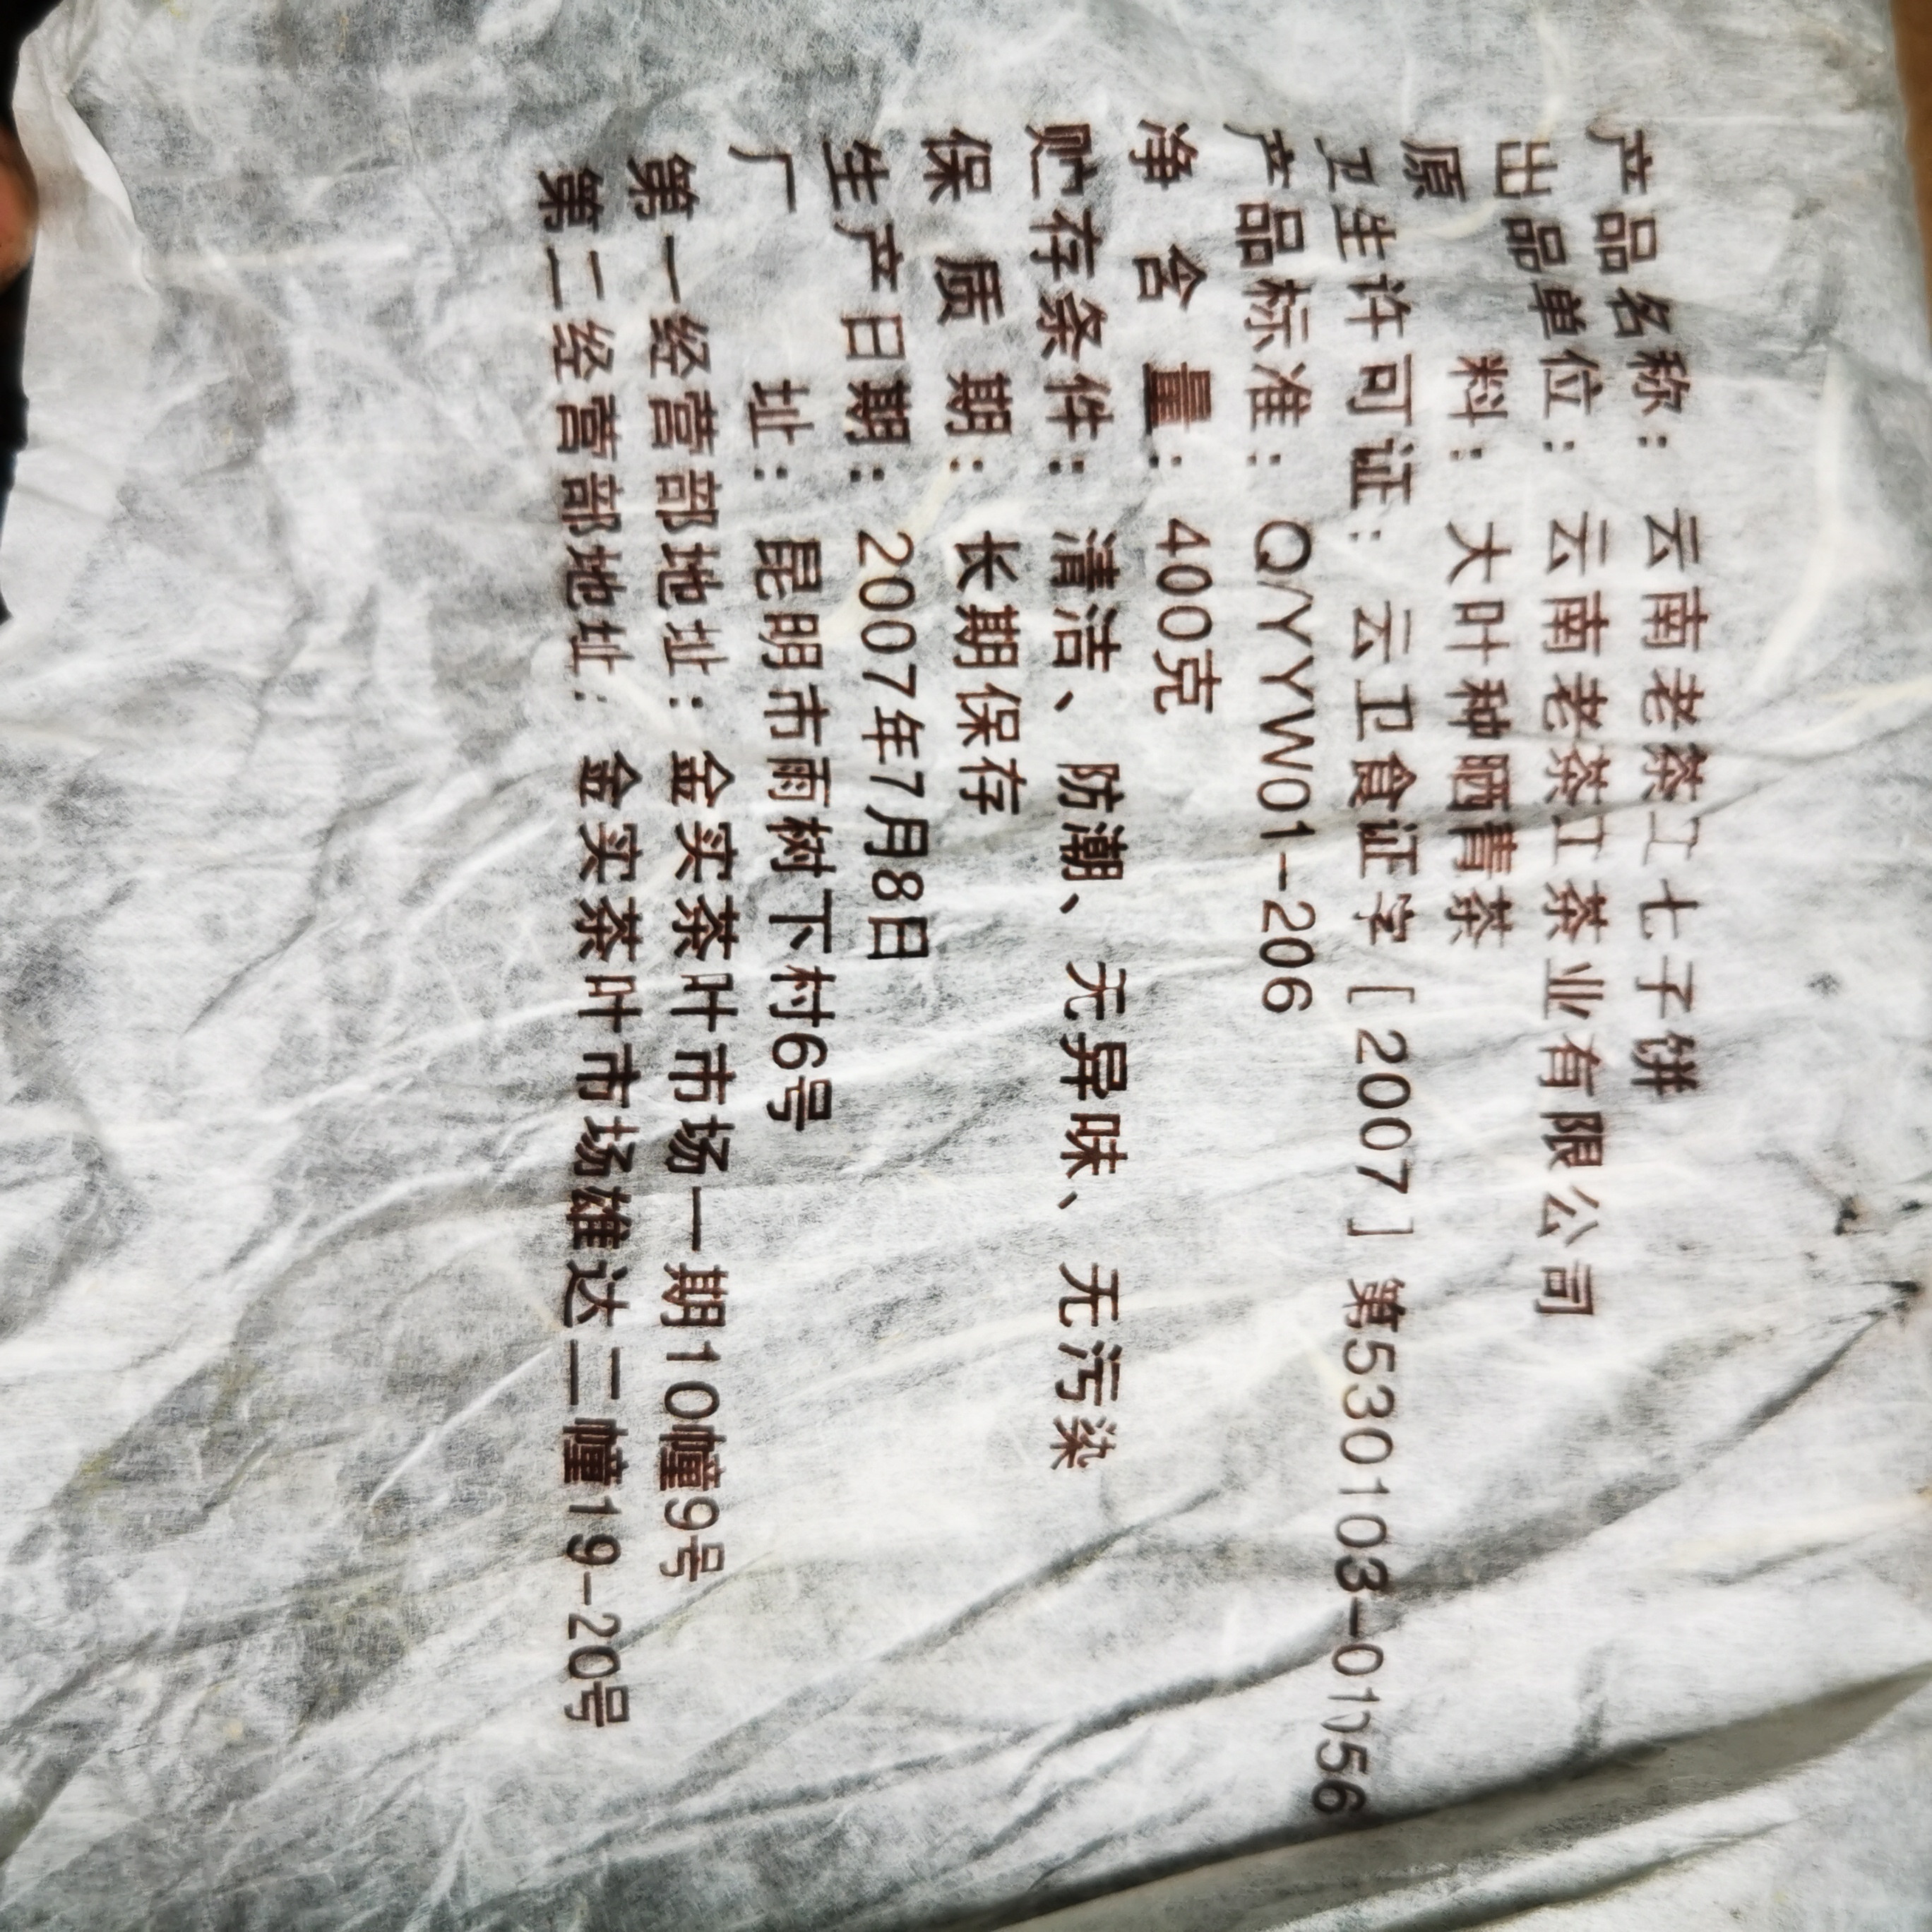 产品名称：云南老茶工七子饼
出品单位：云南老茶工茶业有限公司
原 料：大叶种晒青茶
卫生许可证：云卫食证字［2007］第530103-01056
产品标准：Q/YYW01-206
净 含 量：400克
贮存条件：清洁、防潮、无异味、无污染
保 质 期：长期保存
生产日期：2007年7月8日
厂 址：昆明市雨树下村6号
第一经营部地址：金实茶叶市场一期10幢9号
第二经营部地址：金实茶叶市场雄达二幢19-20号